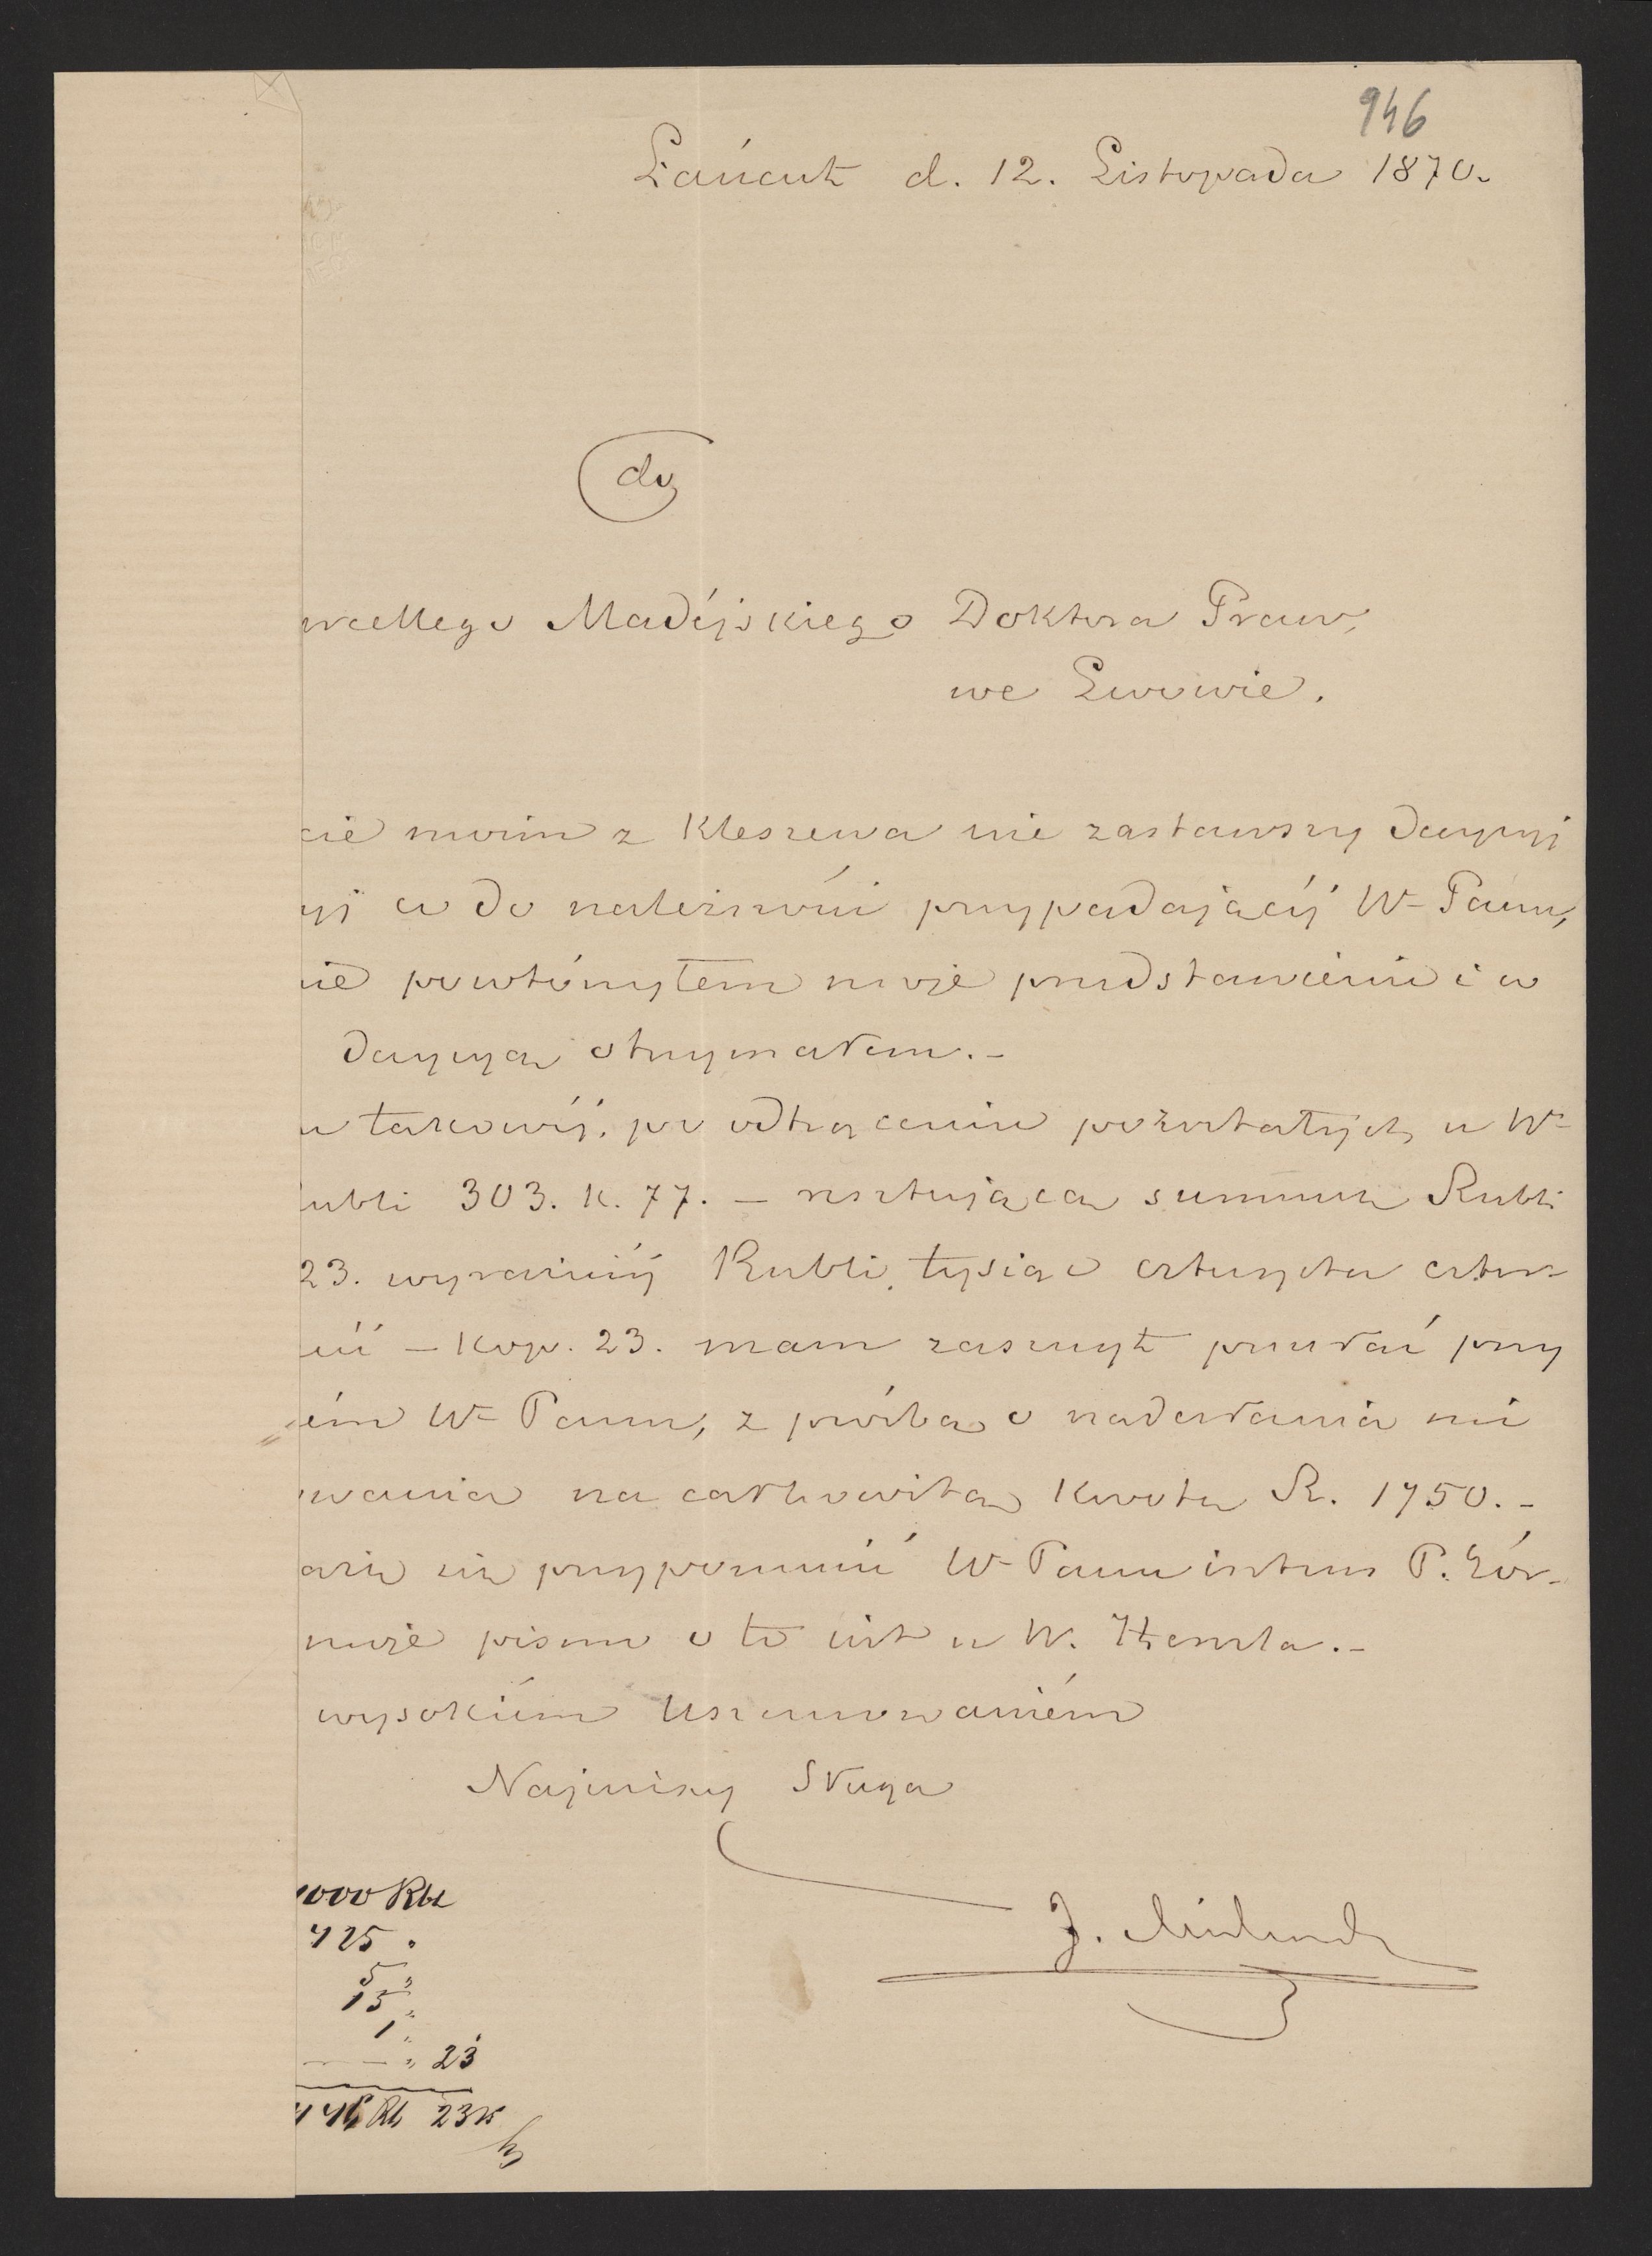 946
Łańcut d. 12. Listopada 1870.
do
Madéjskiego Doktora Praw,
we Lwowie.
cie moim z Kleszewa nie zastawszy decyzyi
yi co do należności przypadającéj W- Panu,
nie powtórzyłem moje przedstawienie i w
decyzya otrzymałem.-
u takowéj, po odtrąceniu pozostałych u W-
ubli 303. k. 77. - resztująca summa Rubli
23. wyraźniéj Rubli tysiąc czterysta czter-
ść - Kop. 23. mam zaszczyt przesłać przy
ém W- Panu, z prośba o nadesłania mi
wania na całkowita Kwota R. 1750.-
przypomnieć W- Panu P. Gór-
moje pismo o to jest u W.
wysokiém Uszanowaniém
Najniższy Sługa
J.
000 Rbl
425 "
5 "
15 "
1 "
— — " 23
446 Rb 23 k